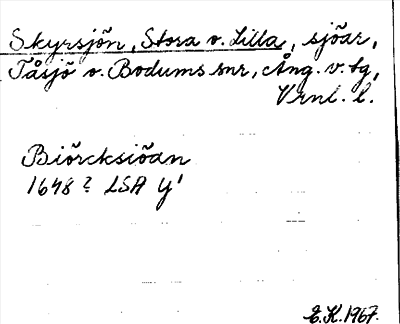 Skyrsjön, Stora o. Lilla, sjöar,
Tåsjö o. Bodums snr, Ång. v. lg,
Vrnl. l.
Biörcksiöan
1648? LSA Y'
E.K. 1967.